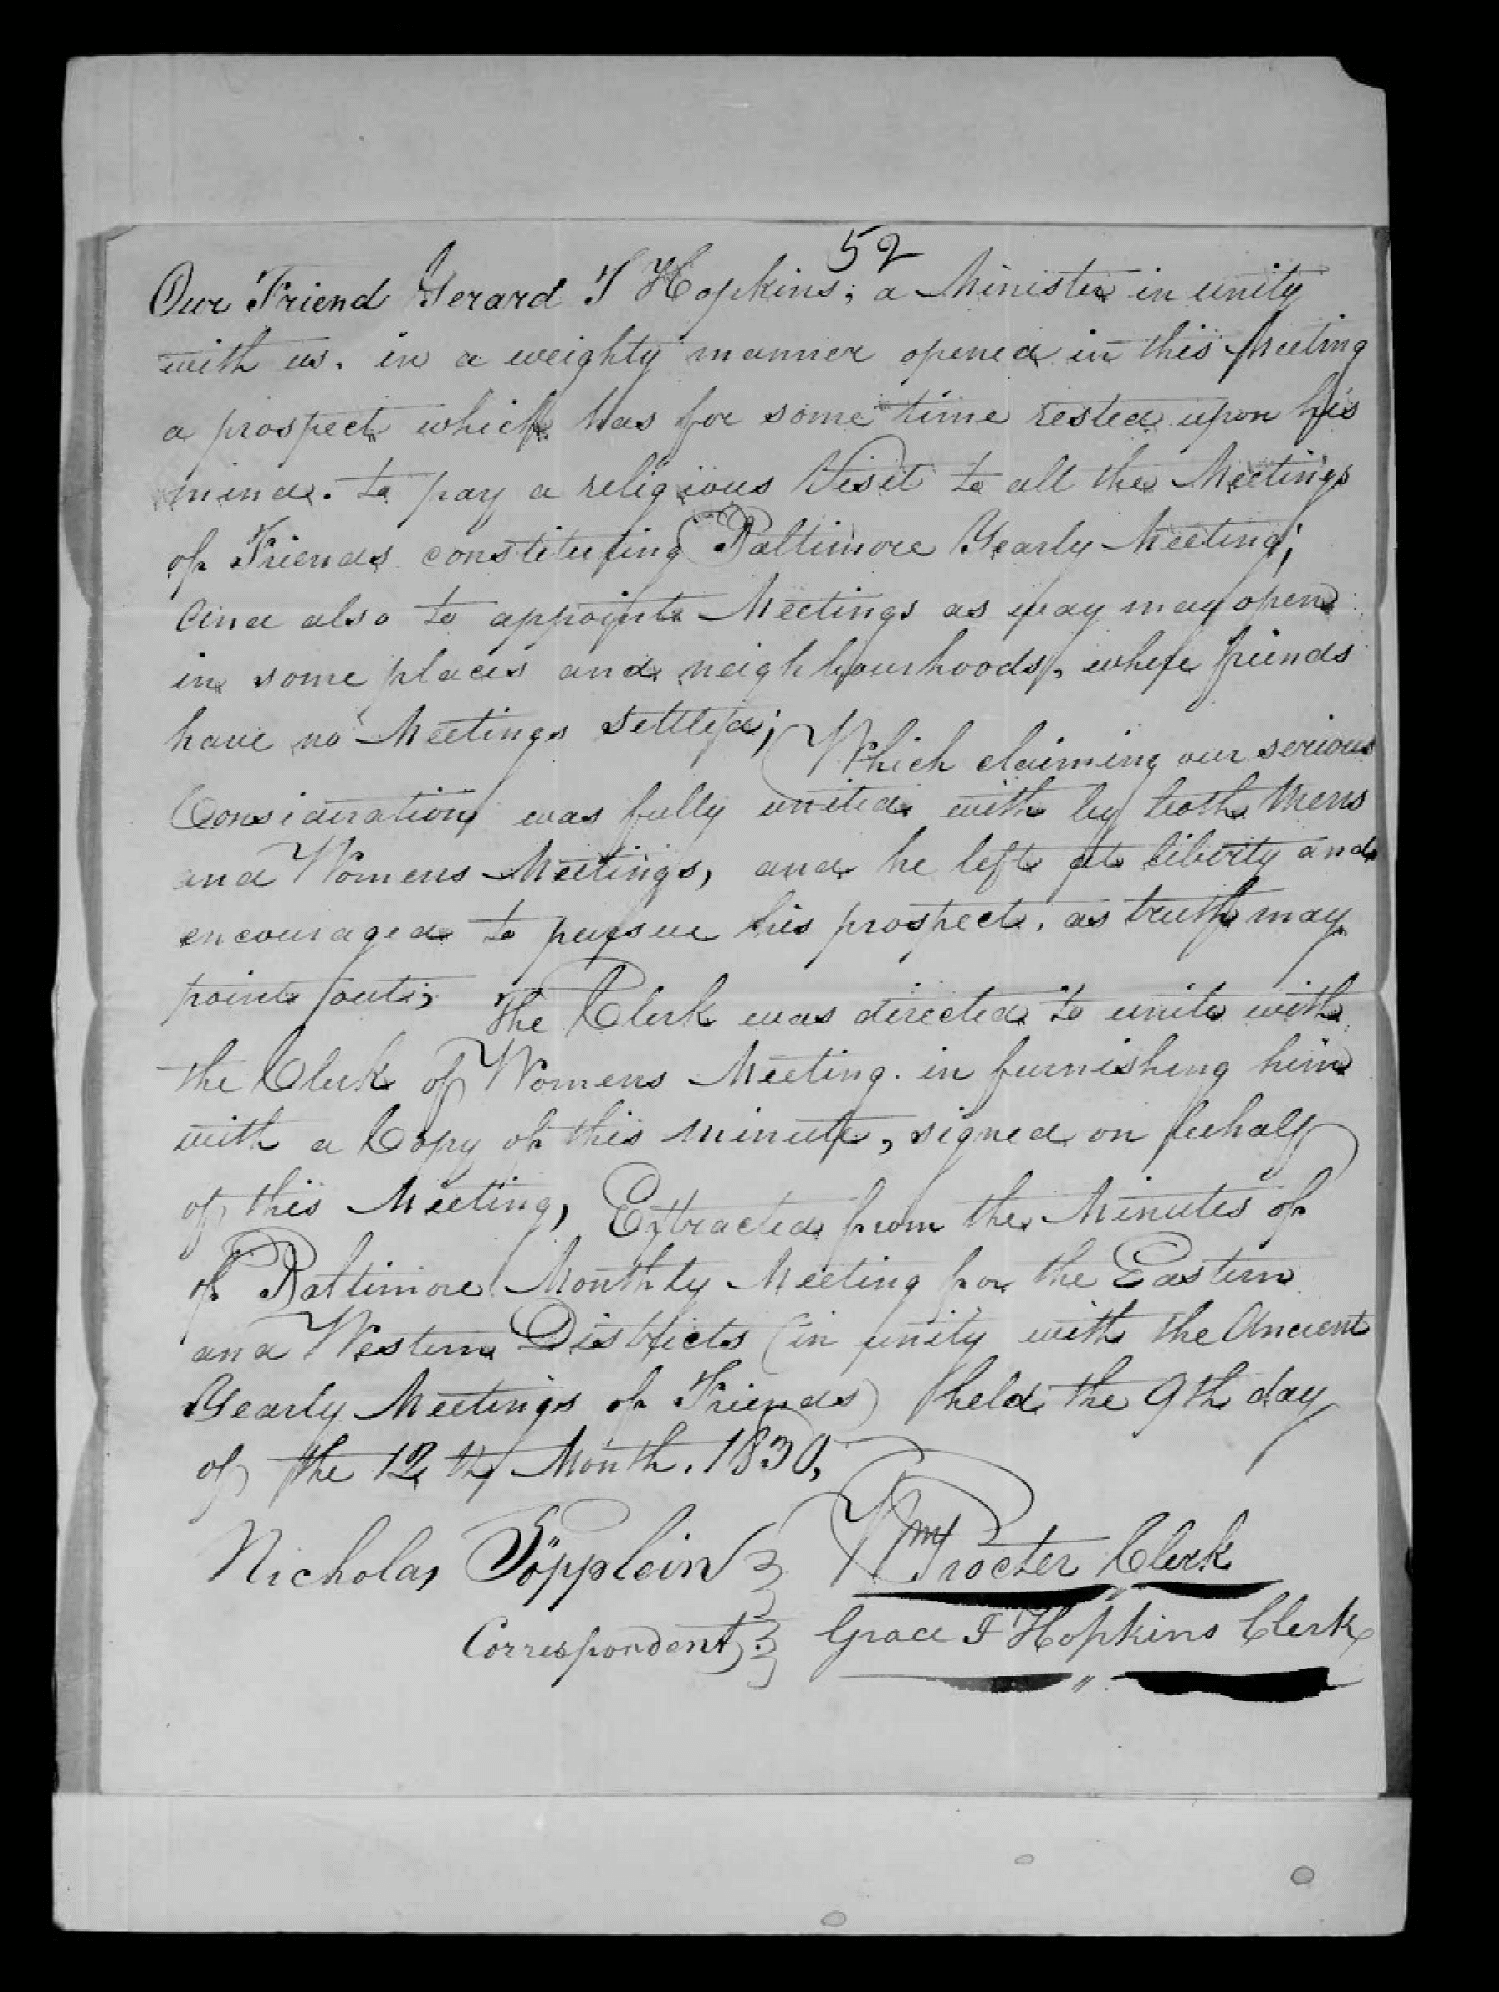 52
Our Friend Gerard T Hopkins, a Minister in unity
with us. in a weighty manner opened in this Meeting
a prospect which has for some time rested upon his
mind. to pay a religious Visit to all the Meetings
of Friends constituting Baltimore Yearly Meeting;
And also to appoint Meetings as way may open
in some places and neighbourhoods, where friends
have no Meetings settled; Which claiming our serious
Consideration was fully united with by both Mens
and Womens Meetings, and he left at liberty and
encouraged to pursue his prospect. as truth may
point out; The Clerk was directed to unite with
the Clerk of Womens Meeting. in furnishing him
with a Copy of this minute, signed on behalf
of this Meeting, Extracted from the Minutes of
of Baltimore Monthly Meeting for the Eastern
and Western Districts (in unity with the Ancient
Yearly Meetings of Friends) held the 9th day
of the 12th Month. 1830,
Nicholas Pöpplein Wm Procter Clerk
Correspondent. Grace J Hopkins Clerk